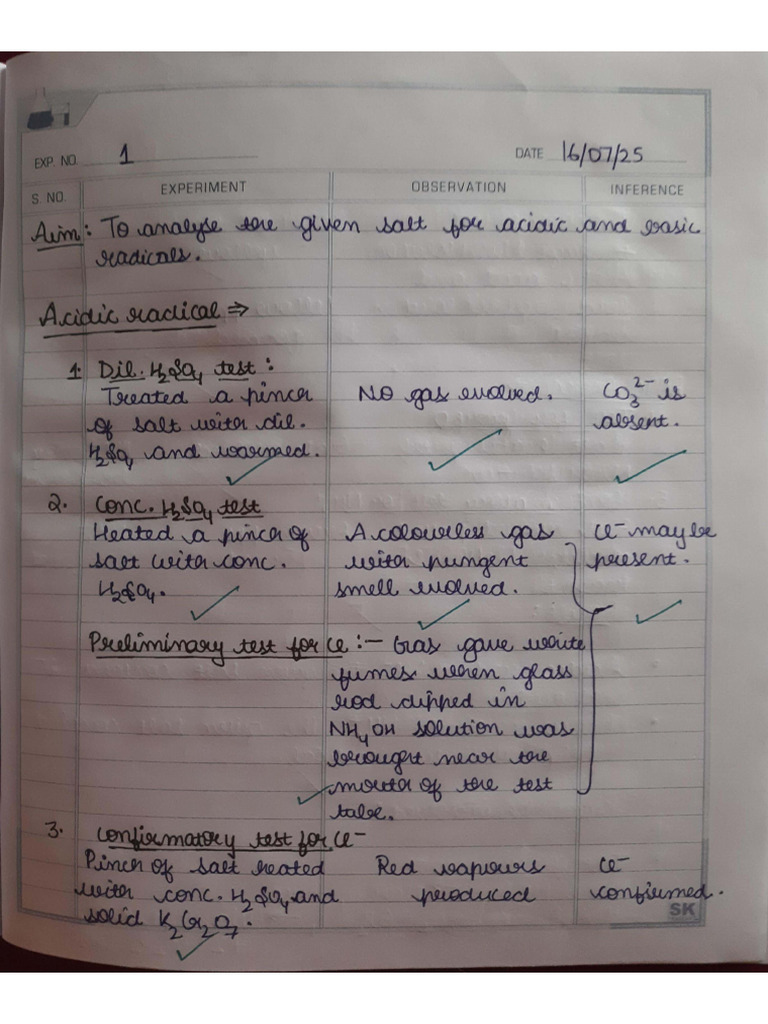 EXP. NO. 1 DATE 16/07/25
S. NO. EXPERIMENT OBSERVATION INFERENCE
Aim: To analyse the given salt for acidic and basic
radicals.
Acidic radical ⇒
1. Dil. H₂SO₄ test :
Treated a pinch No gas evolved. CO₃²⁻ is
of salt with dil. absent.
H₂SO₄ and warmed.
2. Conc. H₂SO₄ test
Heated a pinch of A colourless gas Cl⁻ may be
salt with conc. with pungent present.
H₂SO₄. smell evolved.
Preliminary test for Cl :— Gas gave white
fumes when glass
rod dipped in
NH₄OH solution was
brought near the
mouth of the test
tube.
3. Confirmatory test for Cl⁻
Pinch of salt heated Red vapours Cl⁻
with conc. H₂SO₄ and produced confirmed.
solid K₂Cr₂O₇.
SK